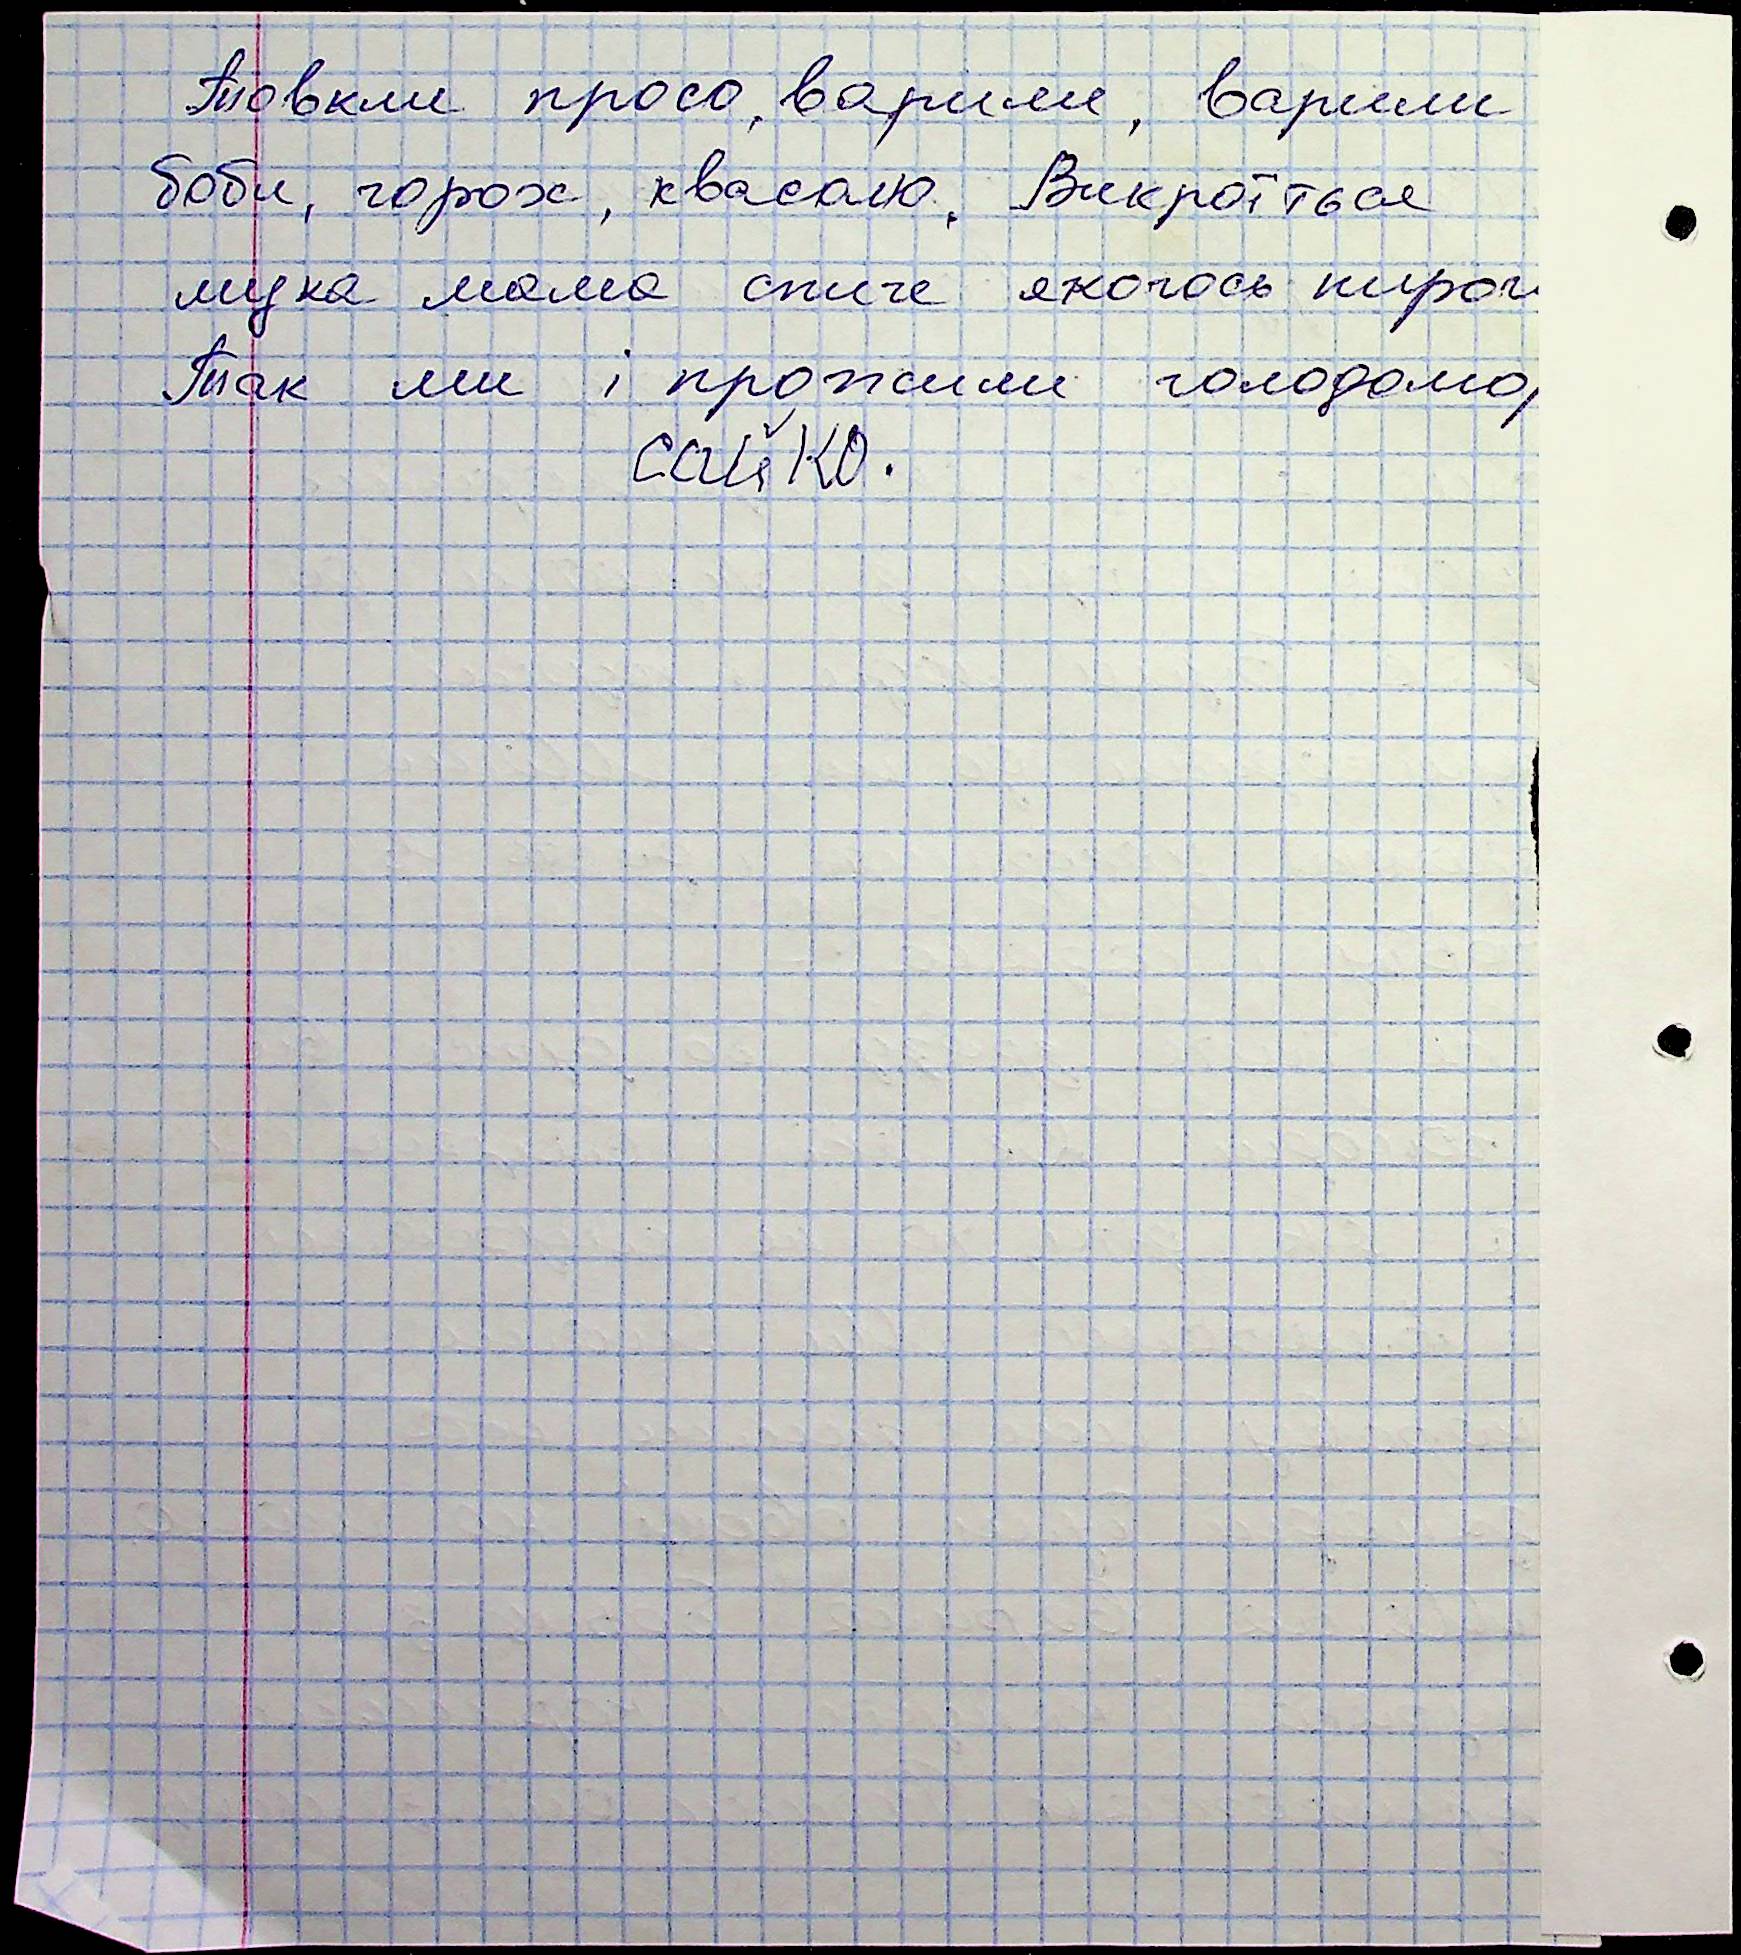 Товкли просо, варили, варили
боби, горох, квасолю. Викроїться
мука мама спиче якогось пирог
Так ми і прожили голодомор
Сайко.